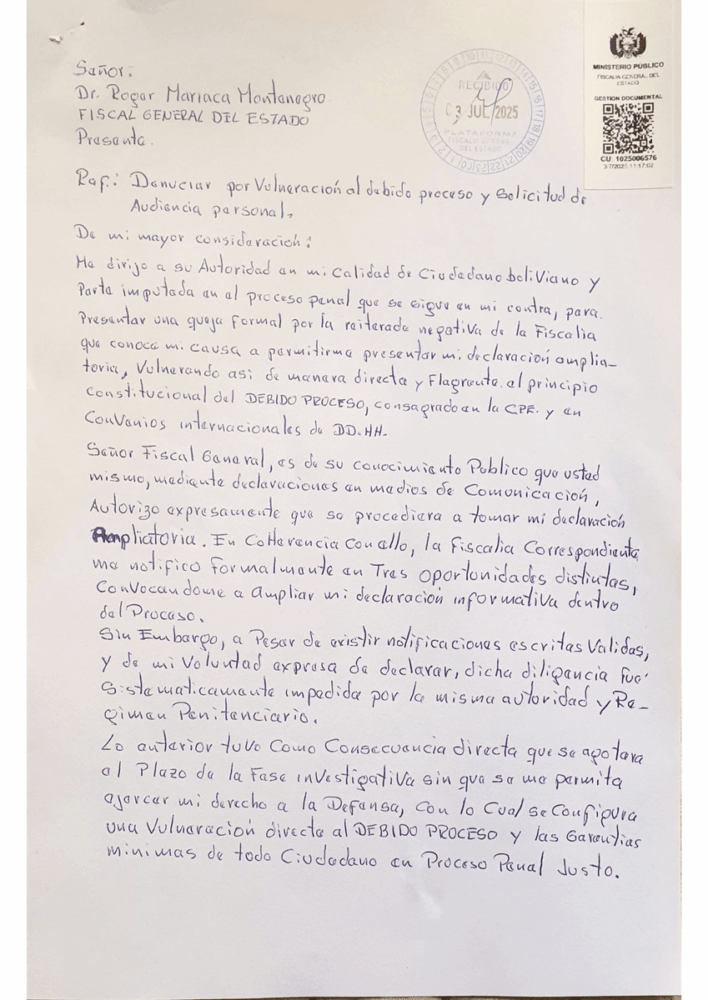 Señor:
Dr. Roger Mariaca Montenegro
FISCAL GENERAL DEL ESTADO
Presente.
RECIBIDO
03 JUL 2025
PLATAFORMA
FISCALIA GENERAL
DEL ESTADO
MINISTERIO PÚBLICO
FISCALIA GENERAL DEL
ESTADO
GESTION DOCUMENTAL
CU 1025006576
3/7/2025 11:17:02
Ref.: Denuciar por Vulneración al debido proceso y Solicitud de
Audiencia personal.
De mi mayor consideración:
Me dirijo a su Autoridad en mi Calidad de Ciudadano boliviano y
Parte imputada en el proceso penal que se sigue en mi contra, para
Presentar una queja Formal por la reiterada negativa de la Fiscalia
que conoce mi causa a permitirme presentar mi declaración amplia-
toria, Vulnerando asi de manera directa y Flagrante el principio
Constitucional del DEBIDO PROCESO, consagrado en la CPE. y en
Convenios internacionales de DD.HH.
Señor Fiscal General, es de su conocimiento Publico que usted
mismo, mediante declaraciones en medios de Comunicación,
Autorizo expresamente que se procediera a tomar mi declaración
Ampliatoria. En CoHerencia Con ello, la Fiscalia Correspondiente
me notifico Formalmente en Tres oportunidades distintas,
Convocandome a Ampliar mi declaración informativa dentro
del Proceso.
Sin Embargo, a Pesar de existir notificaciones escritas Validas,
y de mi Voluntad expresa de declarar, dicha diligencia fue
Sistematicamente impedida por la misma autoridad y Re-
gimen Penitenciario.
Lo anterior tuvo Como Consecuencia directa que se agotara
el Plazo de la Fase investigativa sin que se me permita
ejercer mi derecho a la Defensa, con lo Cual se Configura
una Vulneración directa al DEBIDO PROCESO y las Garantias
minimas de todo Ciudadano en Proceso Penal Justo.